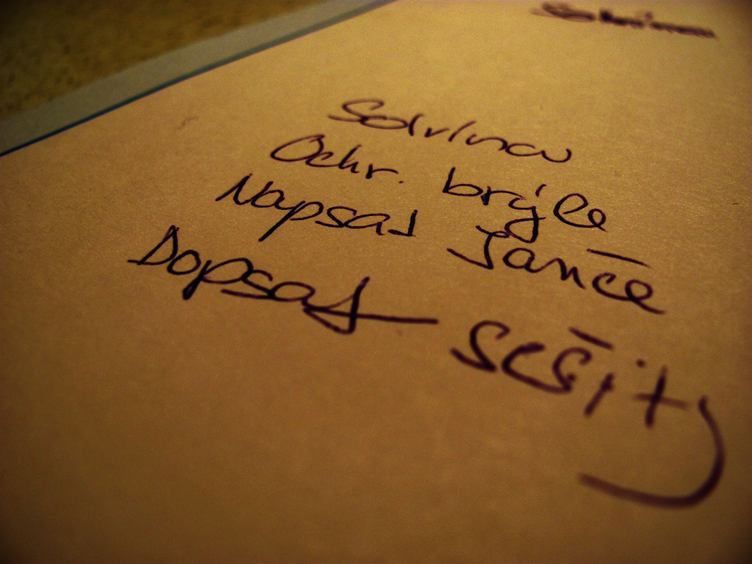 Ochr. brýle
Napsat Janče
Dopsat sešity